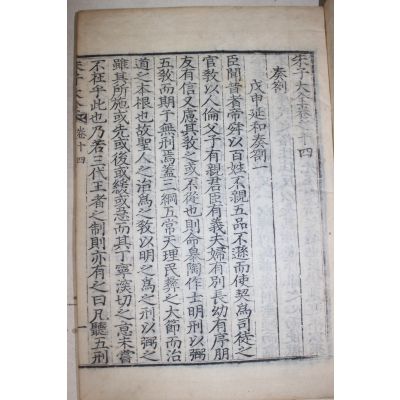 朱子大全卷十四
奏劄
戊申延和奏劄一
臣聞昔者帝舜以百姓不親五品不遜而使契爲司徒之
官教以人倫父子有親君臣有義夫婦有別長幼有序朋
友有信又慮其教之或不從也則命皐陶作士明刑以弼
五教而期于無刑焉蓋三綱五常天理民彝之大節而治
道之本根也故聖人之治爲之教以明之爲之刑以弼之
雖其所施或先或後或緩或急而其丁寧深切之意未嘗
不在乎此也乃若三代王者之制則亦有之曰凡聽五刑
朱子大全 卷十四 一